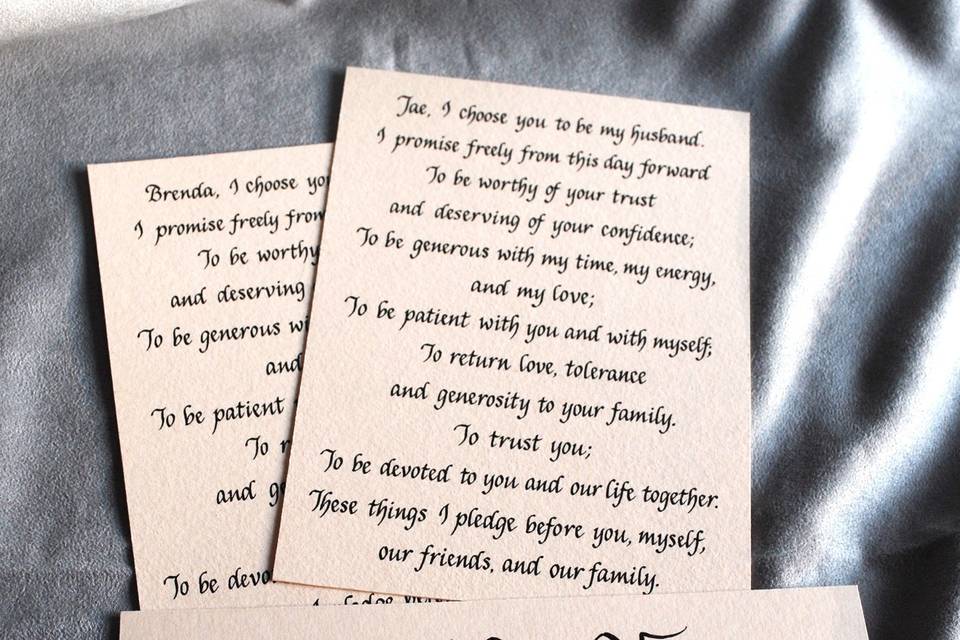 Jae, I choose you to be my husband.
I promise freely from this day forward
To be worthy of your trust
and deserving of your confidence;
To be generous with my time, my energy,
and my love;
To be patient with you and with myself;
To return love, tolerance
and generosity to your family.
To trust you;
To be devoted to you and our life together.
These things I pledge before you, myself,
our friends, and our family.
Brenda, I choose
I promise freely
To be worthy
and deserving
To be generous
and
To be patient
To
and
To be